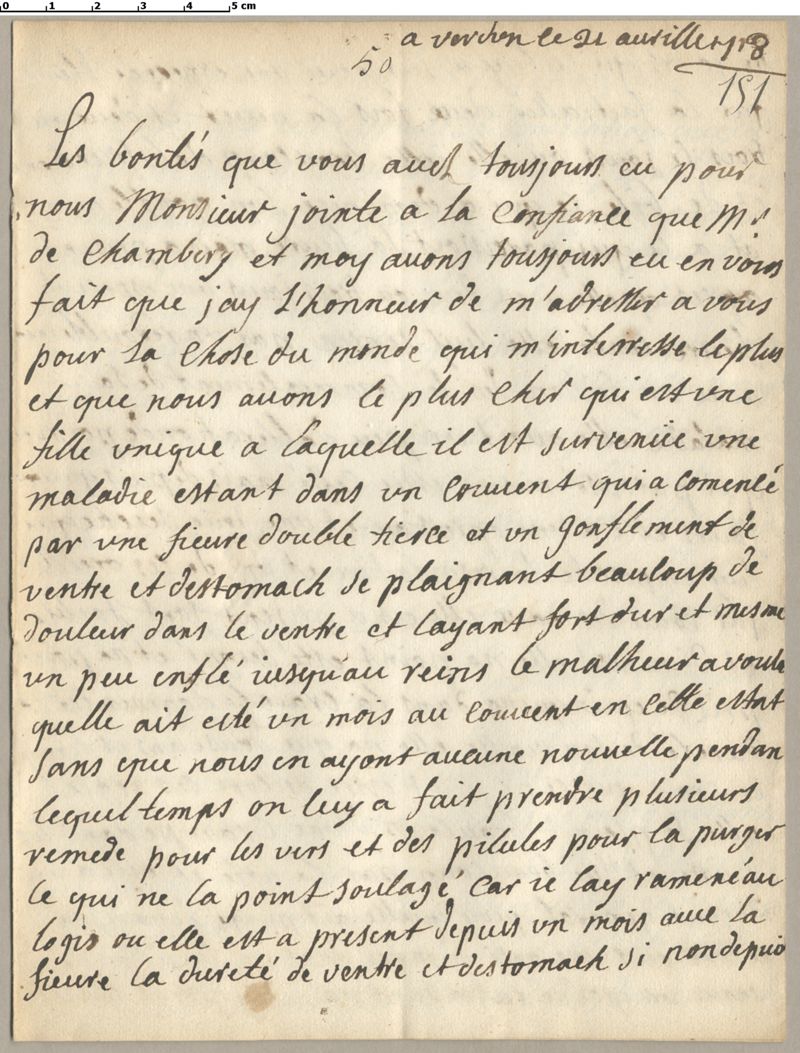 0 1 2 3 4 5 cm
a verdun le 21 avrille 1718
50
151
Les bontés que vous avez tousjours eu pour
nous Monsieur jointe a la Confiance que Mr
de Chambery et moy avons tousjours eu en vous
fait que jay L'honneur de m'adresser a vous
pour La Chose du monde qui m'interresse le plus
et que nous avons le plus Cher qui est vne
fille vnique a laquelle il est survenüe vne
maladie estant dans vn Couvent qui a comencé
par vne fieure double tierce et vn gonflement de
ventre et destomach se plaignant beaucoup de
douleur dans le ventre et layant fort dur et mesme
vn peu enflé iusqu'au reins le malheur a voulu
quelle ait esté vn mois au couvent en cette estat
sans que nous en ayont aucune nouvelle pendan
lequel temps on luy a fait prendre plusieurs
remede pour les vers et des pilules pour la purger
ce qui ne la point soulagé Car ie lay ramenéau
logis ou elle est a present depuis vn mois avec la
fieure la dureté de ventre et destomach si non depuis